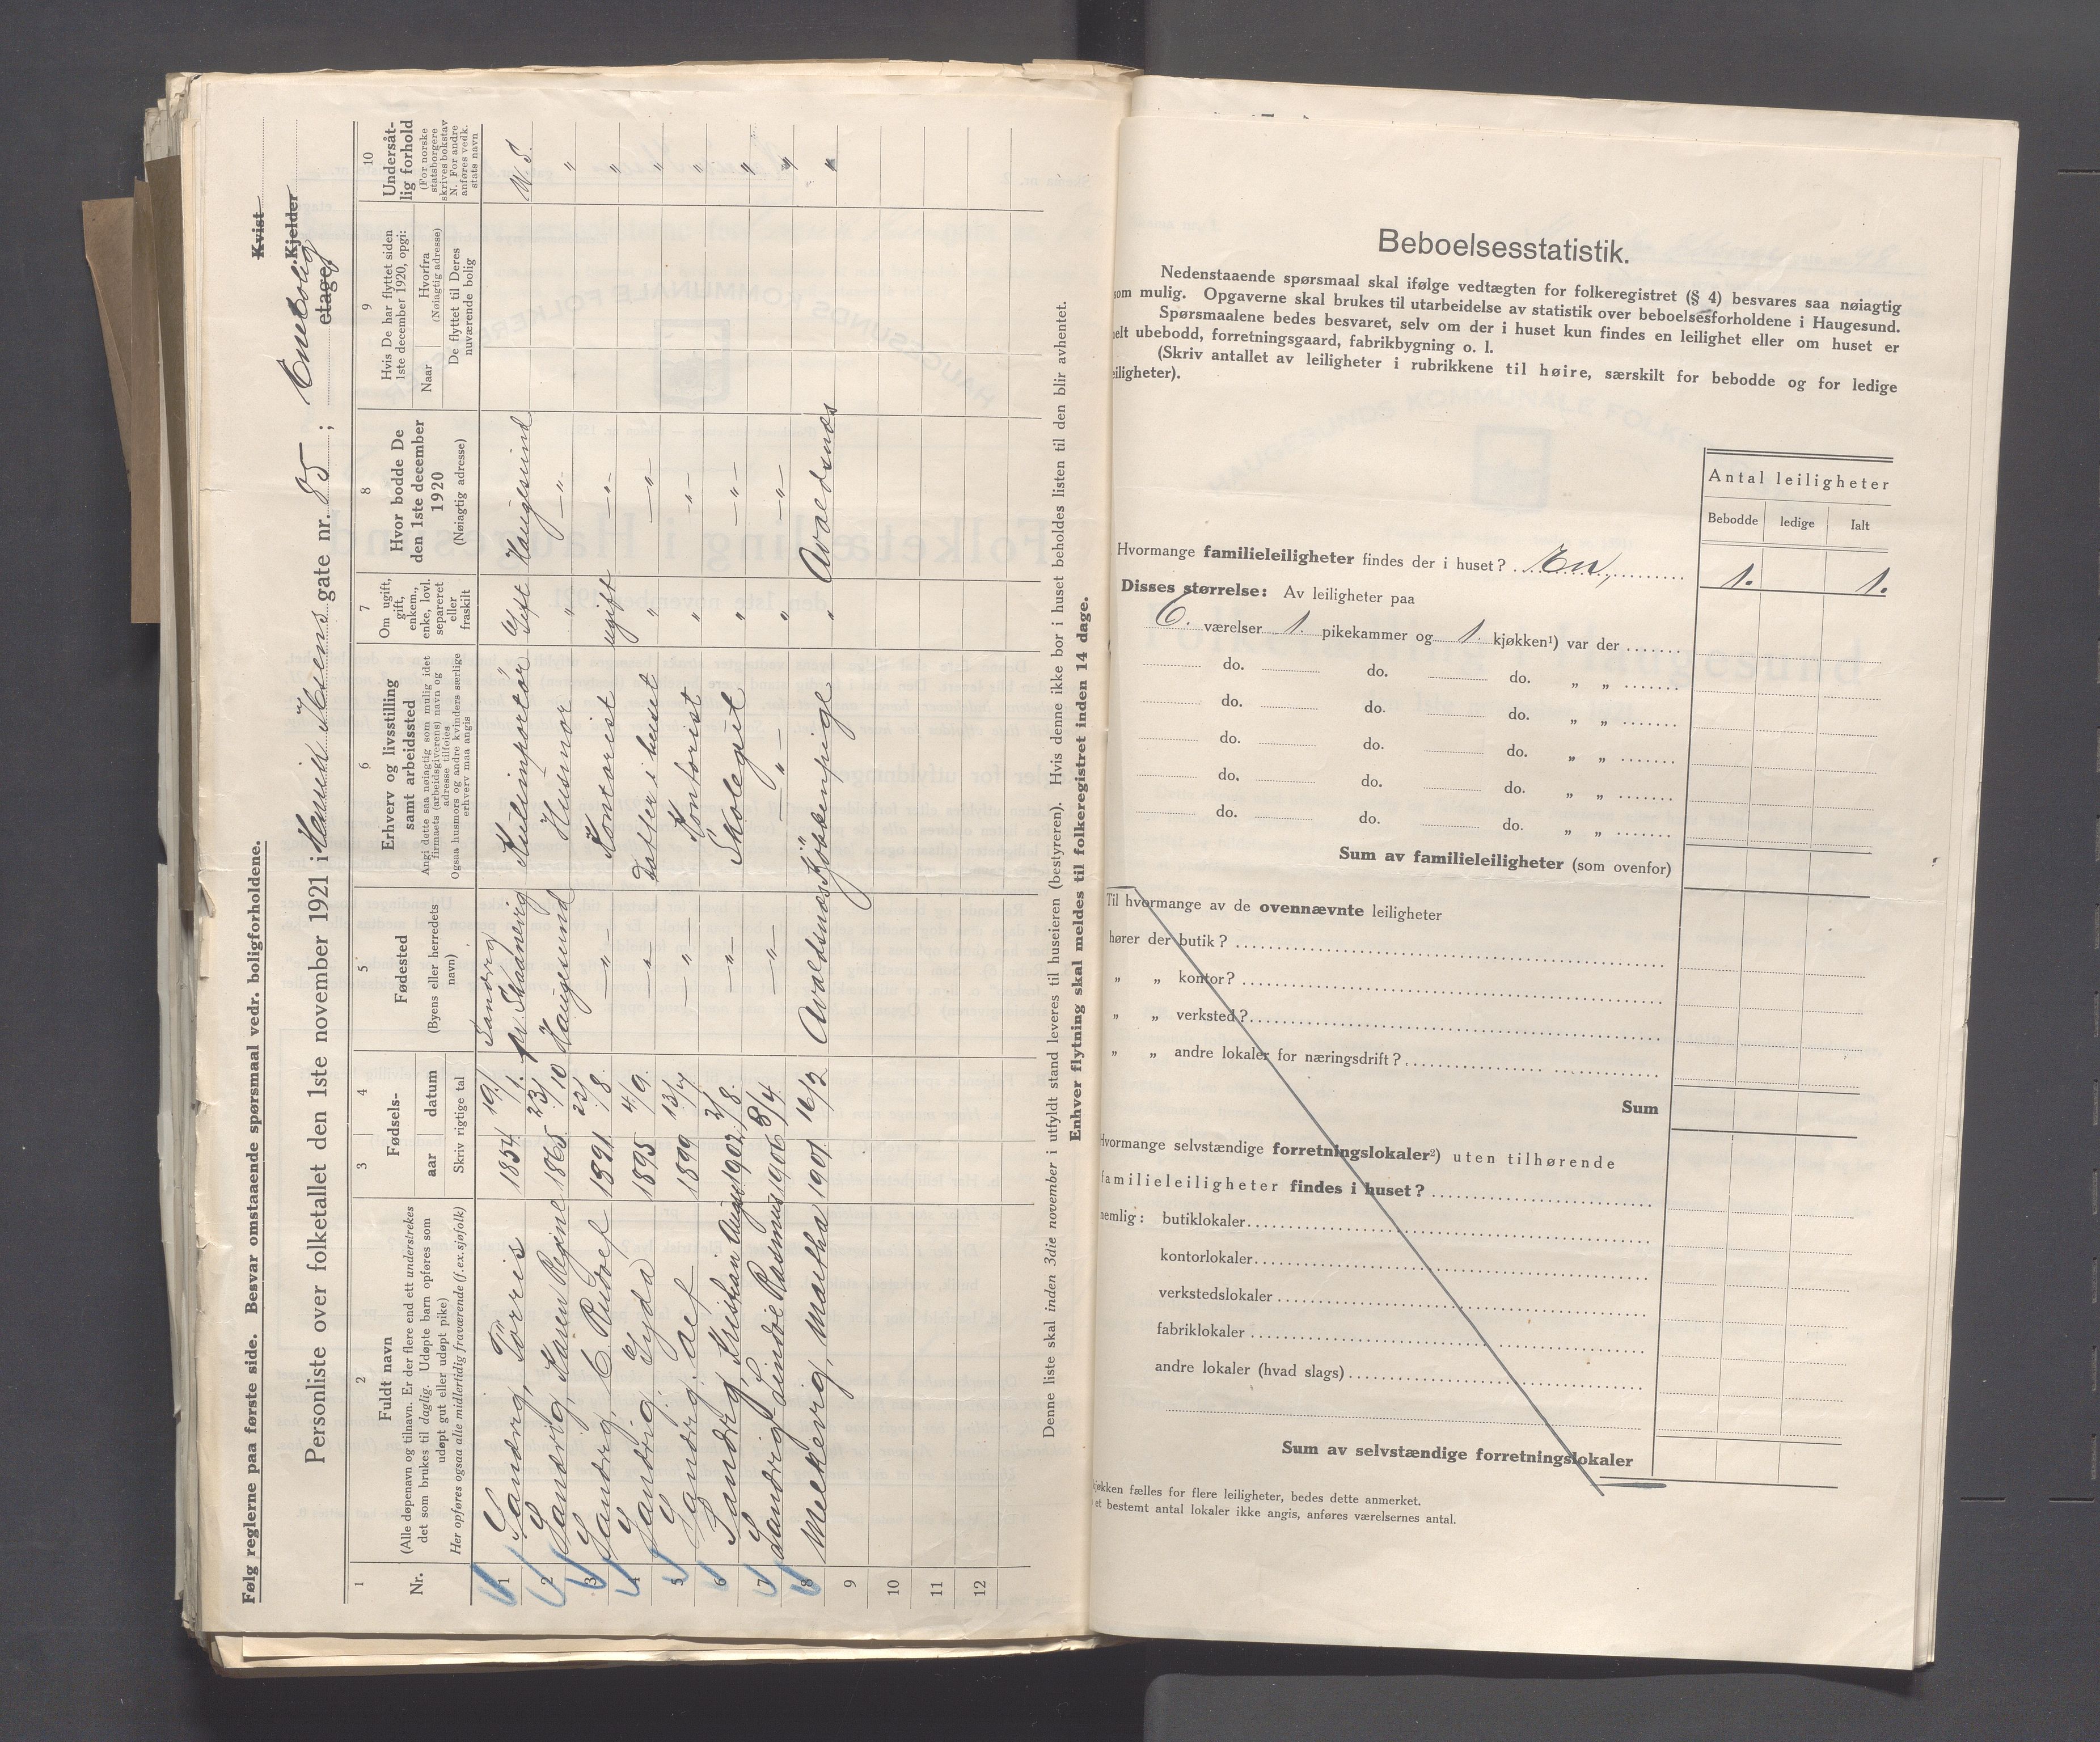 Følg reglerne paa første side. Besvar omstaaende spørsmaal vedr. boligforholdene.
Kvist
Personliste over folketallet den 1ste november 1921 i Henrik Ibsens gate nr. 85 ; Enebolig etage. Kjelder
1 2 3 4 5 6 7 8 9 10
Nr.
Fuldt navn
(Alle døpenavn og tilnavn. Er der flere end ett understrekes
det som brukes til daglig. Udøpte barn opføres som
udøpt gut eller udøpt pike)
Her opføres ogsaa alle midlertidig fraværende (f.ex. sjøfolk)
Fødsels-
aar datum
Skriv rigtige tal
Fødested
(Byens eller herredets
navn)
Erhverv og livsstilling
samt arbeidssted
Angi dette saa nøiagtig som mulig idet
firmaets (arbeidsgiverens) navn og
adresse tilføies
Ogsaa husmors og andre kvinders særlige
erhverv maa angis
Om ugift,
gift,
enkem.,
enke, lovl.
separeret
eller
fraskilt
Hvor bodde De
den 1ste december
1920
(Nøiagtig adresse)
Hvis De har flyttet siden
1ste december 1920, opgi:
Naar Hvorfra
(Nøiagtig adresse)
De flyttet til Deres
nuværende bolig
Undersåt-
lig forhold
(For norske
statsborgere
skrives bokstav
N. For andre
anføres vedk.
stats navn
1 Sandvig, Torris 1854 19/1. Sandvig pr. Skaanevig Gift Haugesund
2 Sandvig, Karen Regine 1865 23/10 Haugesund Husmor " —"—
3 Sandvig, C. Rudolf 1891 22/8. —"— Kontorist ugift —"—
4 Sandvig, Gyda 1895 4/9. —"— Datter i huset " —"—
5 Sandvig, Alf 1899 13/7 —"— Kontorist " —"—
6 Sandvig, Kristian August 1902 2/8. —"— Skolegut " —"—
7 Sandvig Lindøe Rasmus 1906 8/4 —"— —"— " —"—
8 Melkevig, Martha 1901 16/2 Avaldsnes Kjøkkenpige " Avaldsnæs
9
10
11
12
Denne liste skal inden 3die november i utfyldt stand leveres til huseieren (bestyreren). Hvis denne ikke bor i huset beholdes listen til den blir avhentet.
Enhver flytning skal meldes til folkeregistret inden 14 dage.
Beboelsesstatistik.
Nedenstaaende spørsmaal skal ifølge vedtægten for folkeregistret (§ 4) besvares saa nøiagtig
som mulig. Opgaverne skal brukes til utarbeidelse av statistik over beboelsesforholdene i Haugesund.
Spørsmaalene bedes besvaret, selv om der i huset kun findes en leilighet eller om huset er
helt ubebodd, forretningsgaard, fabrikbygning o. l.
(Skriv antallet av leiligheter i rubrikkene til høire, særskilt for bebodde og for ledige
leiligheter).
Antal leiligheter
Bebodde ledige Ialt
Hvormange familieleiligheter findes der i huset? En, 1. 1.
Disses størrelse: Av leiligheter paa
6. værelser 1 pikekammer og 1. kjøkken¹) var der
do. do. do. „ „
do. do. do. „ „
do. do. do. „ „
do. do. do. „ „
do. do. do. „ „
Sum av familieleiligheter (som ovenfor)
Til hvormange av de ovennævnte leiligheter
hører der butik?
„ „ kontor?
„ „ verksted?
„ „ andre lokaler for næringsdrift?
Sum
Hvormange selvstændige forretningslokaler²) uten tilhørende
familieleiligheter findes i huset?
nemlig: butiklokaler
kontorlokaler
verkstedslokaler
fabriklokaler
andre lokaler (hvad slags)
Sum av selvstændige forretningslokaler
kjøkken fælles for flere leiligheter, bedes dette anmerket.
et bestemt antal lokaler ikke angis, anføres værelsernes antal.